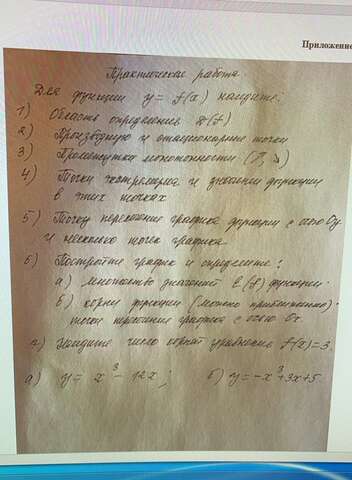 Приложение
Практическая работа.
Для функции y = f(x) найдите:
1) Область определения D(f)
2) Производную и стационарные точки
3) Промежутки монотонности (↗, ↘)
4) Точки экстремума и значения функции
в этих точках
5) Точку пересечения графика функции с осью Oy
и несколько точек графика.
6) Постройте график и определите:
а) множество значений E(f) функции
б) корни функции (можно приближенно)
точки пересечения графика с осью Ox.
7) Найдите число корней уравнения f(x)=3.
а) y = x³ - 12x; б) y = -x³+3x+5.